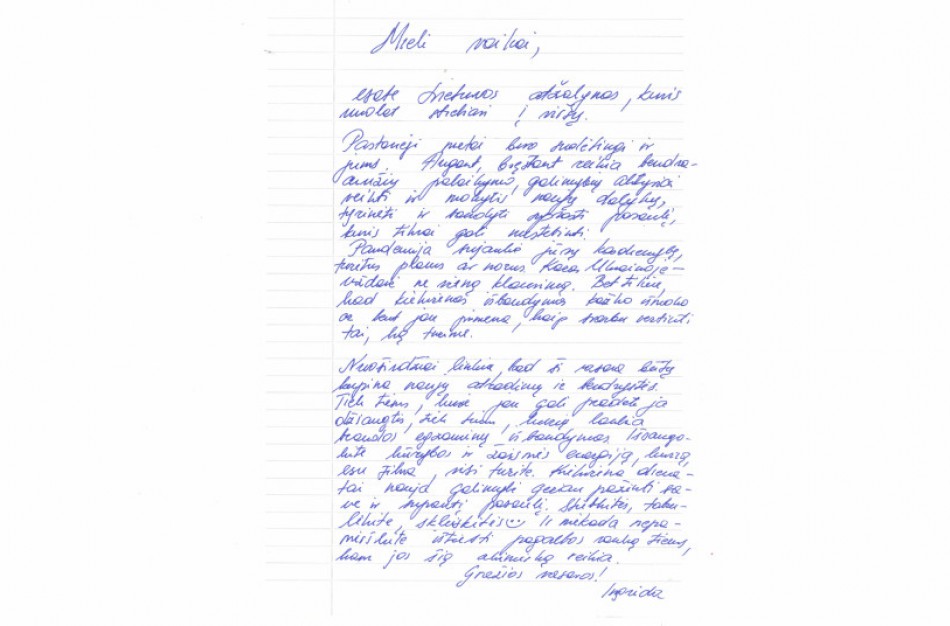 Mieli vaikai,
esate Lietuvos atžalynas, kuris
nuolat stiebiasi į viršų.
Pastarieji metai buvo sudėtingi ir
jums. Augant, bręstant reikia bendra-
amžių palaikymo, galimybių aktyviai
veikti ir mokytis naujų dalykų,
tyrinėti ir bandyti suprasti pasaulį,
kuris tikrai gali nustebinti.
Pandemija sujaukė jūsų kasdienybę,
ateities planus ar norus. Karas Ukrainoje –
uždavė ne vieną klausimą. Bet tikiu,
kad kiekvienas išbandymas kažko išmoko
ar bent jau primena, kaip svarbu vertinti
tai, ką turime.
Nuoširdžiai linkiu, kad ši vasara būtų
kupina naujų atradimų ir bendrystės.
Tiek tiems, kurie jau gali pradėti ja
džiaugtis, tiek tiems, kurių laukia
brandos egzaminų išbandymas. Išsaugo-
kite kūrybos ir žaismės energiją, kurią,
esu tikra, visi turite. Kiekviena diena –
tai nauja galimybė geriau pažinti sa-
ve ir supantį pasaulį. Stiebkitės, tobu-
lėkite, skleiskitės☺ Ir niekada nepa-
mirškite ištiesti pagalbos ranką tiems,
kam jos šią akimirką reikia.
Gražios vasaros!
Ingrida